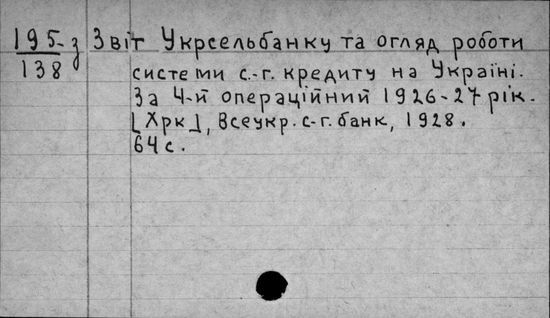 195-з Звіт Укрсельбанку та огляд роботи
138 системи с.-г. кредиту на Україні.
За 4-й операційний 1926-27 рік.
[Хрк], Всеукр. с-г. банк, 1928.
64 с.